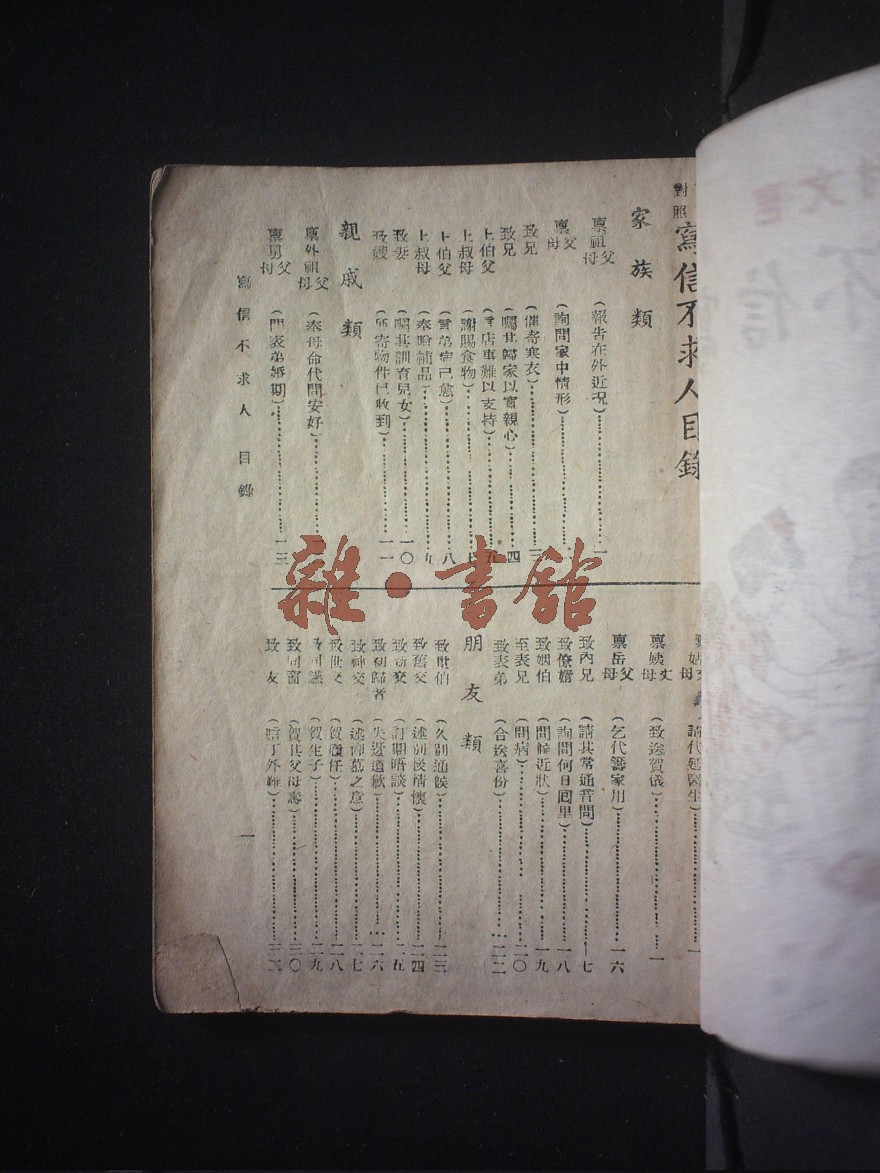 對照
寫信不求人目錄
家族類
稟祖父母(報告在外近況)……一
稟父母(詢問家中情形)……
致兄(催寄寒衣)……三
致兄(囑其歸家以寬親心)……四
上伯父(言店事難以支持)……五
上叔母(謝賜食物)……
上伯父(言弟病已愈)……八
上叔母(奉贈補品)……九
致妻(囑其訓育兒女)……一〇
致嫂(所寄物件已收到)……一一
親戚類
稟外祖父母(奉母命代問安好)……
稟舅父母(問表弟婚期)……一三
(請代延醫生)……
稟姨丈母(致送賀儀)……
稟岳父母(乞代籌家用)……一六
致內兄(請其常通音問)……一七
致僚婿(詢問何日回里)……一八
致姻伯(問候近狀)……一九
至表兄(問病)……二〇
致表弟(合送喜份)……二二
朋友類
致世伯(久別通候)……二三
致舊交(述別後情懷)……二四
致新交(訂期晤談)……二五
致初歸者(失迓道歉)……二六
致神交(述仰慕之意)……二七
致世交(賀履任)……二八
致同譜(賀生子)……二九
致同窗(賀其父母壽)……三〇
致友(唁丁外艱)……三
寫信不求人 目錄
一
雜·書館